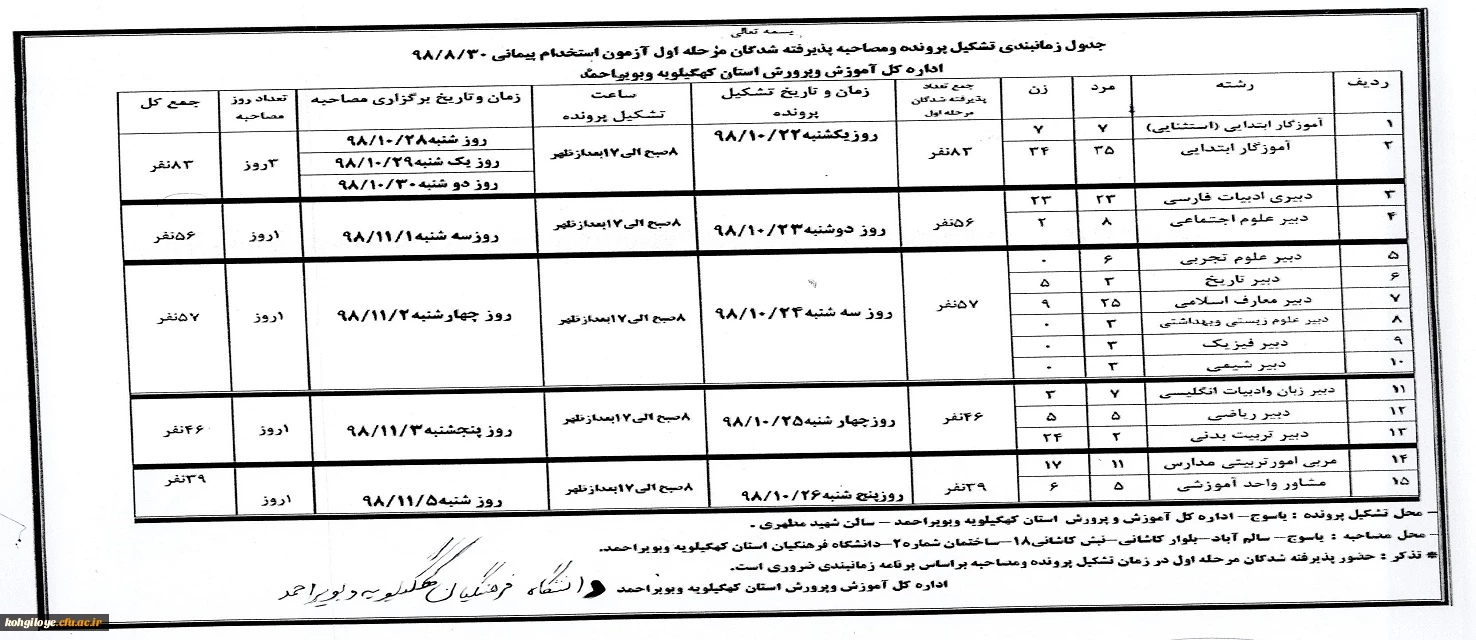 بسمه تعالی
جدول زمانبندی تشکیل پرونده ومصاحبه پذیرفته شدگان مرحله اول آزمون استخدام پیمانی ۹۸/۸/۳۰
اداره کل آموزش وپرورش استان کهگیلویه وبویراحمد
ردیف رشته مرد زن جمع تعداد پذیرفته شدگان مرحله اول زمان و تاریخ تشکیل پرونده ساعت تشکیل پرونده زمان وتاریخ برگزاری مصاحبه تعداد روز مصاحبه جمع کل
۱ آموزگار ابتدایی (استثنایی) ۷ ۷
۲ آموزگار ابتدایی ۳۵ ۳۴
۸۳نفر روزیکشنبه۹۸/۱۰/۲۲ ۸صبح الی۱۷بعدازظهر
روز شنبه۹۸/۱۰/۲۸
روز یک شنبه۹۸/۱۰/۲۹
روز دو شنبه۹۸/۱۰/۳۰
۳روز ۸۳نفر
۳ دبیری ادبیات فارسی ۲۳ ۲۳
۴ دبیر علوم اجتماعی ۸ ۲
۵۶نفر روز دوشنبه۹۸/۱۰/۲۳ ۸صبح الی۱۷بعدازظهر روزسه شنبه۹۸/۱۱/۱ ۱روز ۵۶نفر
۵ دبیر علوم تجربی ۶ ۰
۶ دبیر تاریخ ۳ ۵
۷ دبیر معارف اسلامی ۲۵ ۹
۸ دبیر علوم زیستی وبهداشتی ۳ ۰
۹ دبیر فیزیک ۳ ۰
۱۰ دبیر شیمی ۳ ۰
۵۷نفر روز سه شنبه۹۸/۱۰/۲۴ ۸صبح الی۱۷بعدازظهر روز چهارشنبه۹۸/۱۱/۲ ۱روز ۵۷نفر
۱۱ دبیر زبان وادبیات انگلیسی ۷ ۳
۱۲ دبیر ریاضی ۵ ۵
۱۳ دبیر تربیت بدنی ۲ ۲۴
۴۶نفر روزچهار شنبه۹۸/۱۰/۲۵ ۸صبح الی۱۷بعدازظهر روز پنجشنبه۹۸/۱۱/۳ ۱روز ۴۶نفر
۱۴ مربی امورتربیتی مدارس ۱۱ ۱۷
۱۵ مشاور واحد آموزشی ۵ ۶
۳۹نفر روزپنج شنبه۹۸/۱۰/۲۶ ۸صبح الی۱۷بعدازظهر روز شنبه۹۸/۱۱/۵ ۱روز ۳۹نفر
– محل تشکیل پرونده : یاسوج– اداره کل آموزش و پرورش استان کهگیلویه وبویراحمد – سالن شهید مطهری .
– محل مصاحبه : یاسوج– سالم آباد–بلوار کاشانی–نبش کاشانی۱۸–ساختمان شماره۲–دانشگاه فرهنگیان استان کهگیلویه وبویراحمد.
* تذکر : حضور پذیرفته شدگان مرحله اول در زمان تشکیل پرونده ومصاحبه براساس برنامه زمانبندی ضروری است.
اداره کل آموزش وپرورش استان کهگیلویه وبویراحمد و دانشگاه فرهنگیان کهگیلویه و بویراحمد
kohgiloye.cfu.ac.ir